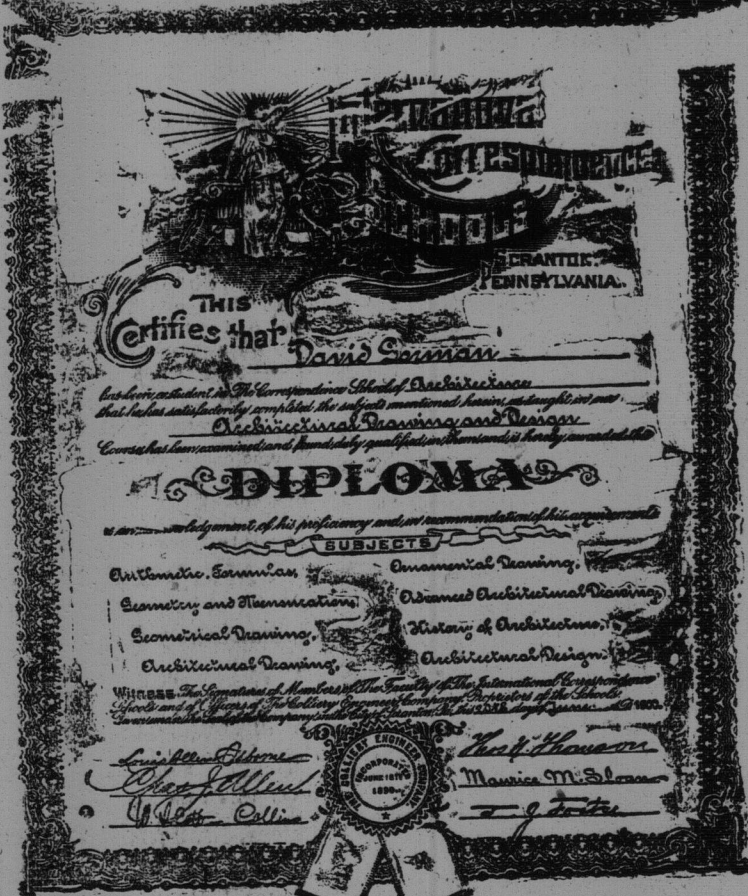 International
Correspondence
Schools
SCRANTON,
PENNSYLVANIA.
THIS
Certifies that
David
has been a student in The Correspondence School of Architecture
that he has satisfactorily completed the subjects mentioned herein, as taught in our
Architectural Drawing and Design
Course, has been examined and found duly qualified in them and is hereby awarded this
DIPLOMA
of his proficiency and in recommendation of his acquirements
SUBJECTS
Arithmetic, Formulas, Ornamental Drawing,
Geometry and Mensuration, Advanced Architectural Drawing,
Geometrical Drawing, History of Architecture,
Architectural Drawing, Architectural Design.
Witness, The Signatures of Members of The Faculty of The International Correspondence
Schools and of Officers of The Colliery Engineer Company, Proprietors of the Schools
the Seal of the Company, in the City of Scranton, Pa. this day of 1900.
Chas. J. Allen
Collins
THE COLLIERY ENGINEER COMPANY
INCORPORATED
1890
Maurice M. Sloan